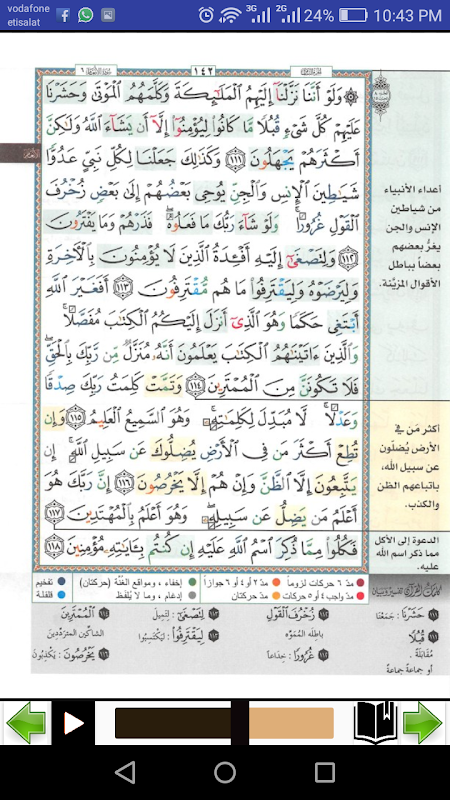 vodafone
etisalat
3G
2G
24%
10:43 PM
١٤٢
۞ وَلَوْ أَنَّنَا نَزَّلْنَآ إِلَيْهِمُ ٱلْمَلَٰٓئِكَةَ وَكَلَّمَهُمُ ٱلْمَوْتَىٰ وَحَشَرْنَا
عَلَيْهِمْ كُلَّ شَىْءٍ قُبُلًا مَّا كَانُوا۟ لِيُؤْمِنُوٓا۟ إِلَّآ أَن يَشَآءَ ٱللَّهُ وَلَٰكِنَّ
أَكْثَرَهُمْ يَجْهَلُونَ ١١١ وَكَذَٰلِكَ جَعَلْنَا لِكُلِّ نَبِىٍّ عَدُوًّا
شَيَٰطِينَ ٱلْإِنسِ وَٱلْجِنِّ يُوحِى بَعْضُهُمْ إِلَىٰ بَعْضٍ زُخْرُفَ
ٱلْقَوْلِ غُرُورًا ۚ وَلَوْ شَآءَ رَبُّكَ مَا فَعَلُوهُ ۖ فَذَرْهُمْ وَمَا يَفْتَرُونَ
١١٢ وَلِتَصْغَىٰٓ إِلَيْهِ أَفْـِٔدَةُ ٱلَّذِينَ لَا يُؤْمِنُونَ بِٱلْءَاخِرَةِ
وَلِيَرْضَوْهُ وَلِيَقْتَرِفُوا۟ مَا هُم مُّقْتَرِفُونَ ١١٣ أَفَغَيْرَ ٱللَّهِ
أَبْتَغِى حَكَمًا وَهُوَ ٱلَّذِىٓ أَنزَلَ إِلَيْكُمُ ٱلْكِتَٰبَ مُفَصَّلًا ۚ
وَٱلَّذِينَ ءَاتَيْنَٰهُمُ ٱلْكِتَٰبَ يَعْلَمُونَ أَنَّهُۥ مُنَزَّلٌ مِّن رَّبِّكَ بِٱلْحَقِّ ۖ
فَلَا تَكُونَنَّ مِنَ ٱلْمُمْتَرِينَ ١١٤ وَتَمَّتْ كَلِمَتُ رَبِّكَ صِدْقًا
وَعَدْلًا ۚ لَّا مُبَدِّلَ لِكَلِمَٰتِهِۦ ۚ وَهُوَ ٱلسَّمِيعُ ٱلْعَلِيمُ ١١٥ وَإِن
تُطِعْ أَكْثَرَ مَن فِى ٱلْأَرْضِ يُضِلُّوكَ عَن سَبِيلِ ٱللَّهِ ۚ إِن
يَتَّبِعُونَ إِلَّا ٱلظَّنَّ وَإِنْ هُمْ إِلَّا يَخْرُصُونَ ١١٦ إِنَّ رَبَّكَ هُوَ
أَعْلَمُ مَن يَضِلُّ عَن سَبِيلِهِۦ ۖ وَهُوَ أَعْلَمُ بِٱلْمُهْتَدِينَ ١١٧
فَكُلُوا۟ مِمَّا ذُكِرَ ٱسْمُ ٱللَّهِ عَلَيْهِ إِن كُنتُم بِـَٔايَٰتِهِۦ مُؤْمِنِينَ ١١٨
أعداء الأنبياء
من شياطين
الإنس والجن
يغرُّ بعضهم
بعضاً بباطل
الأقوال المزيَّنة.
أكثر مَن في
الأرض يُضلّون
عن سبيل الله،
باتباعهم الظن
والكذب.
الدعوة إلى الأكل
مما ذكر اسم الله
عليه.
مدّ ٦ حركات لزوماً
مدّ ٢ أو ٤ أو ٦ جوازاً
إخفاء، ومواقع الغُنَّة (حركتان)
تفخيم
مدّ واجب ٤ أو ٥ حركات
مدّ حركتان
إدغام، وما لا يُلفَظ
قلقلة
١١١ حَشَرْنَا : جَمَعْنَا
١١٢ زُخْرُفَ الْقَوْلِ
١١٣ لِتَصْغَى : لِتَمِيلَ
١١٤ الْمُمْتَرِينَ
١١١ قُبُلًا
باطِلَه المُمَوَّه
١١٣ لِيَقْتَرِفُوا : لِيَكْتَسِبُوا
الشاكّين المتردِّدين
مُقَابَلَةً .
أو جماعةً جماعةً
١١٢ غُرُورًا : خِدَاعاً
١١٦ يَخْرُصُونَ : يَكْذِبُونَ